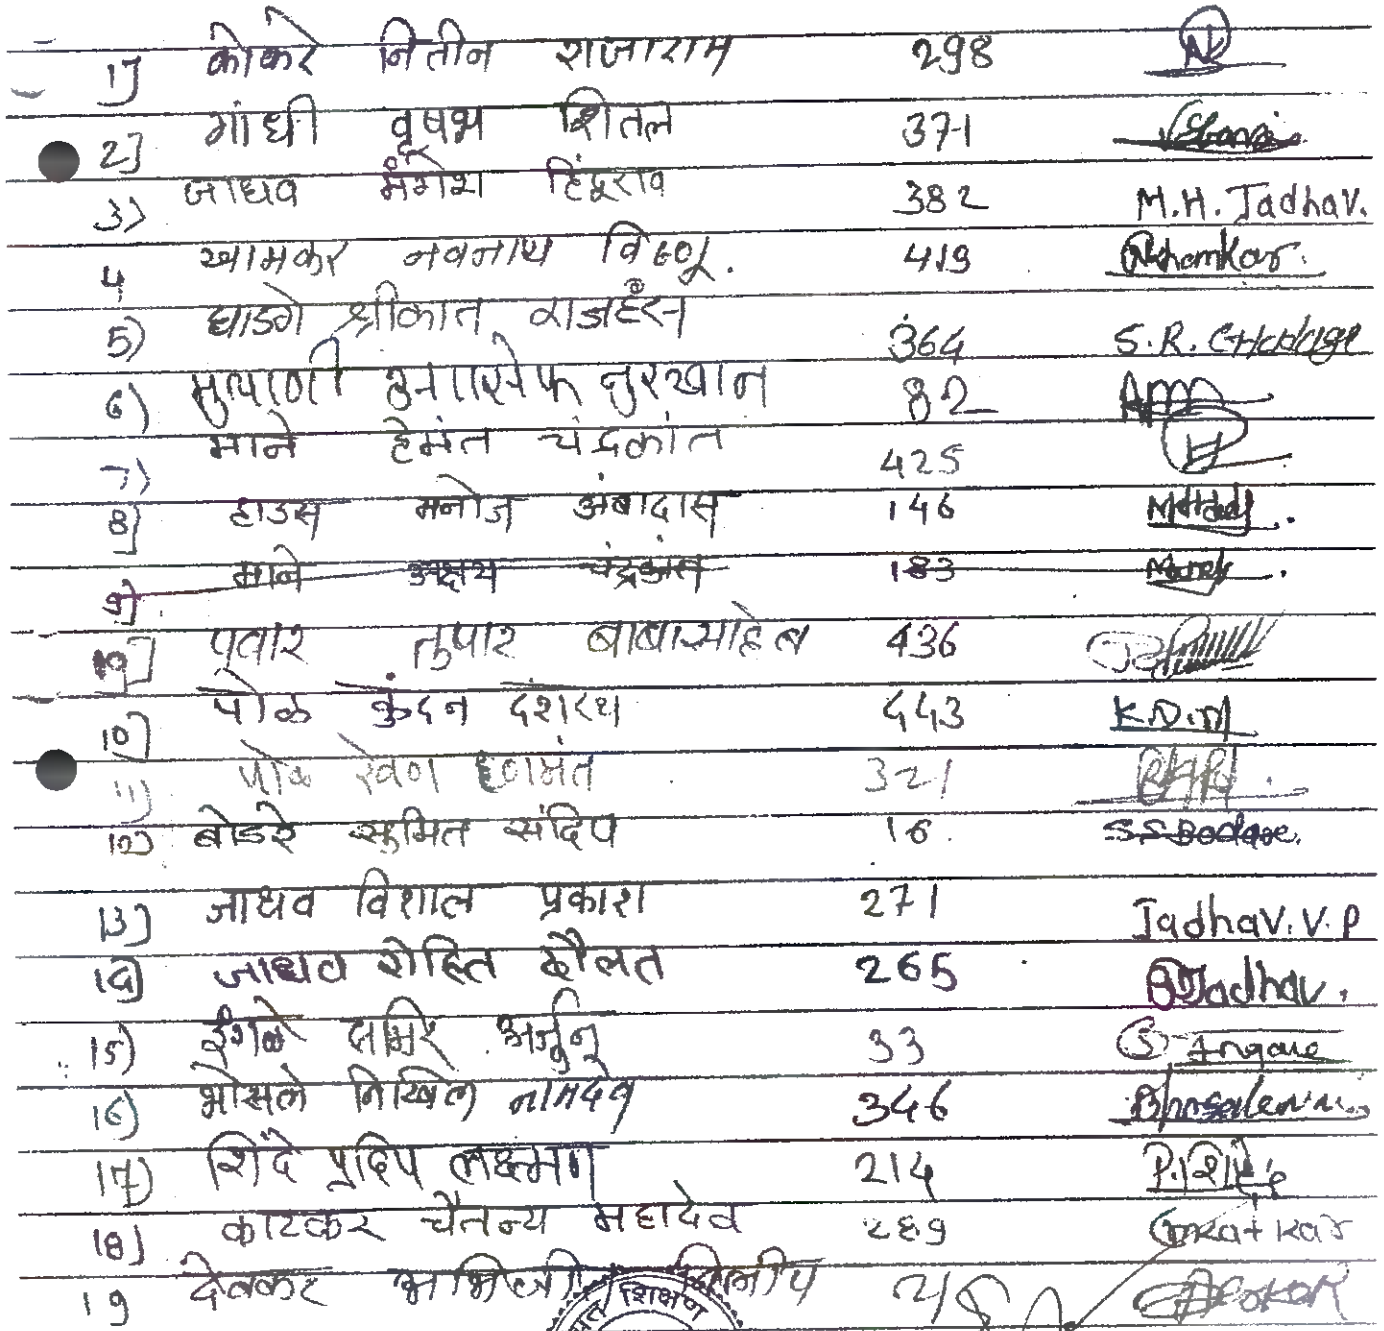 1] कोकरे नितीन राजाराम 298
2] गांधी वृषभ शितल 371
3) जाधव मंगेश हिंदूराव 382 M.H. Jadhav.
4 खामकर नवनाथ विष्णू. 419 Khamkar.
5) घाडगे श्रीकांत राजहंस 364 S.R. Ghadage
6) मुलाणी आसिफ नुरखान 82
7) माने हेमंत चंद्रकांत 425
8] हाडस मनोज अंबादास 146
9] माने अक्षय चंद्रकांत 183 Mane
10] पवार तुषार बाबासाहेब 436
10] पोळ कुंदन दशरथ 443
11) पोळ रेवण हणमंत 321
12) बोडरे सुमित संदिप 16. S.S Bodare.
13) जाधव विशाल प्रकाश 271 Jadhav.V.P
14) जाधव रोहित दौलत 265 Jadhav.
15) इंगळे समिर अर्जुन 33 Ingale
16) भोसले निखिल नामदेव 346 Bhosale
17) शिंदे प्रदिप लक्ष्मण 214 P. शिंदे
18) काटकर चैतन्य महादेव 289 Katkar
19 देवकर
शिक्षण